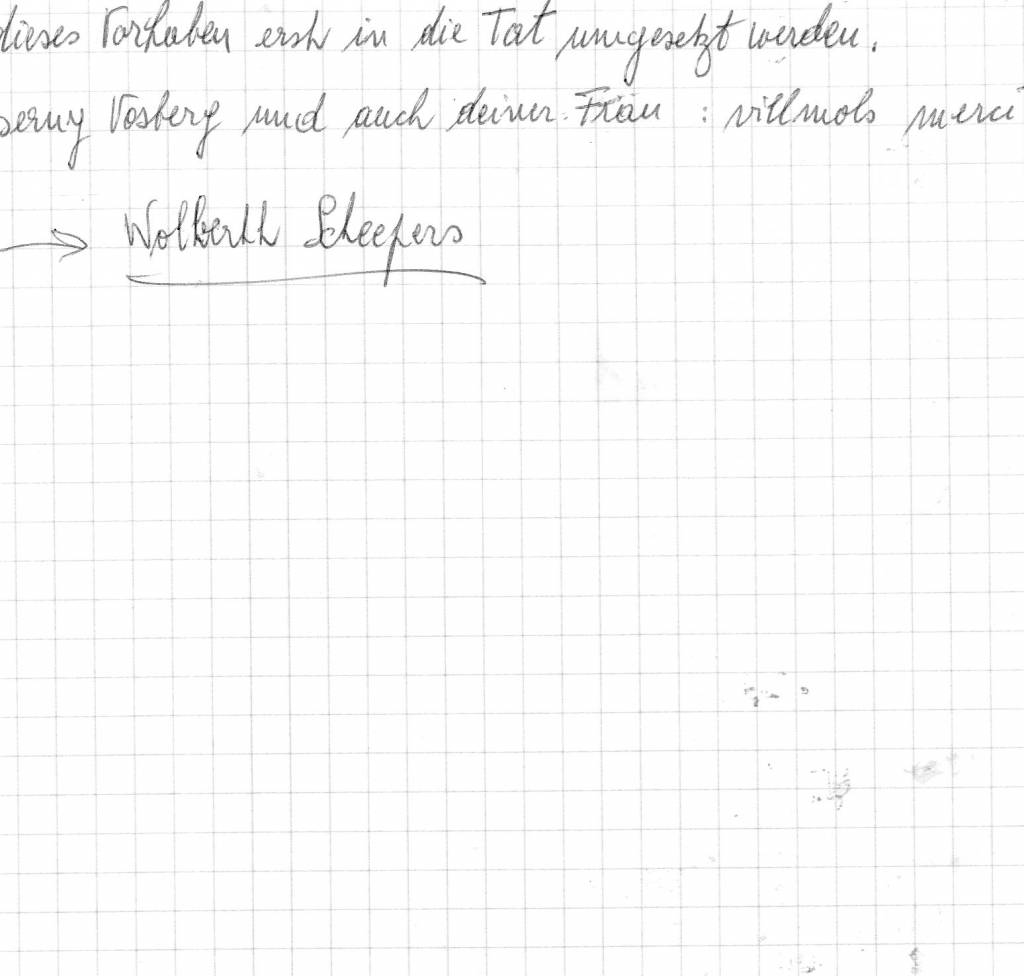 dieses Vorhaben erst in die Tat umgesetzt werden.
Vosberg und auch deiner Frau : villmols merci
→ Wolberth Scheepers